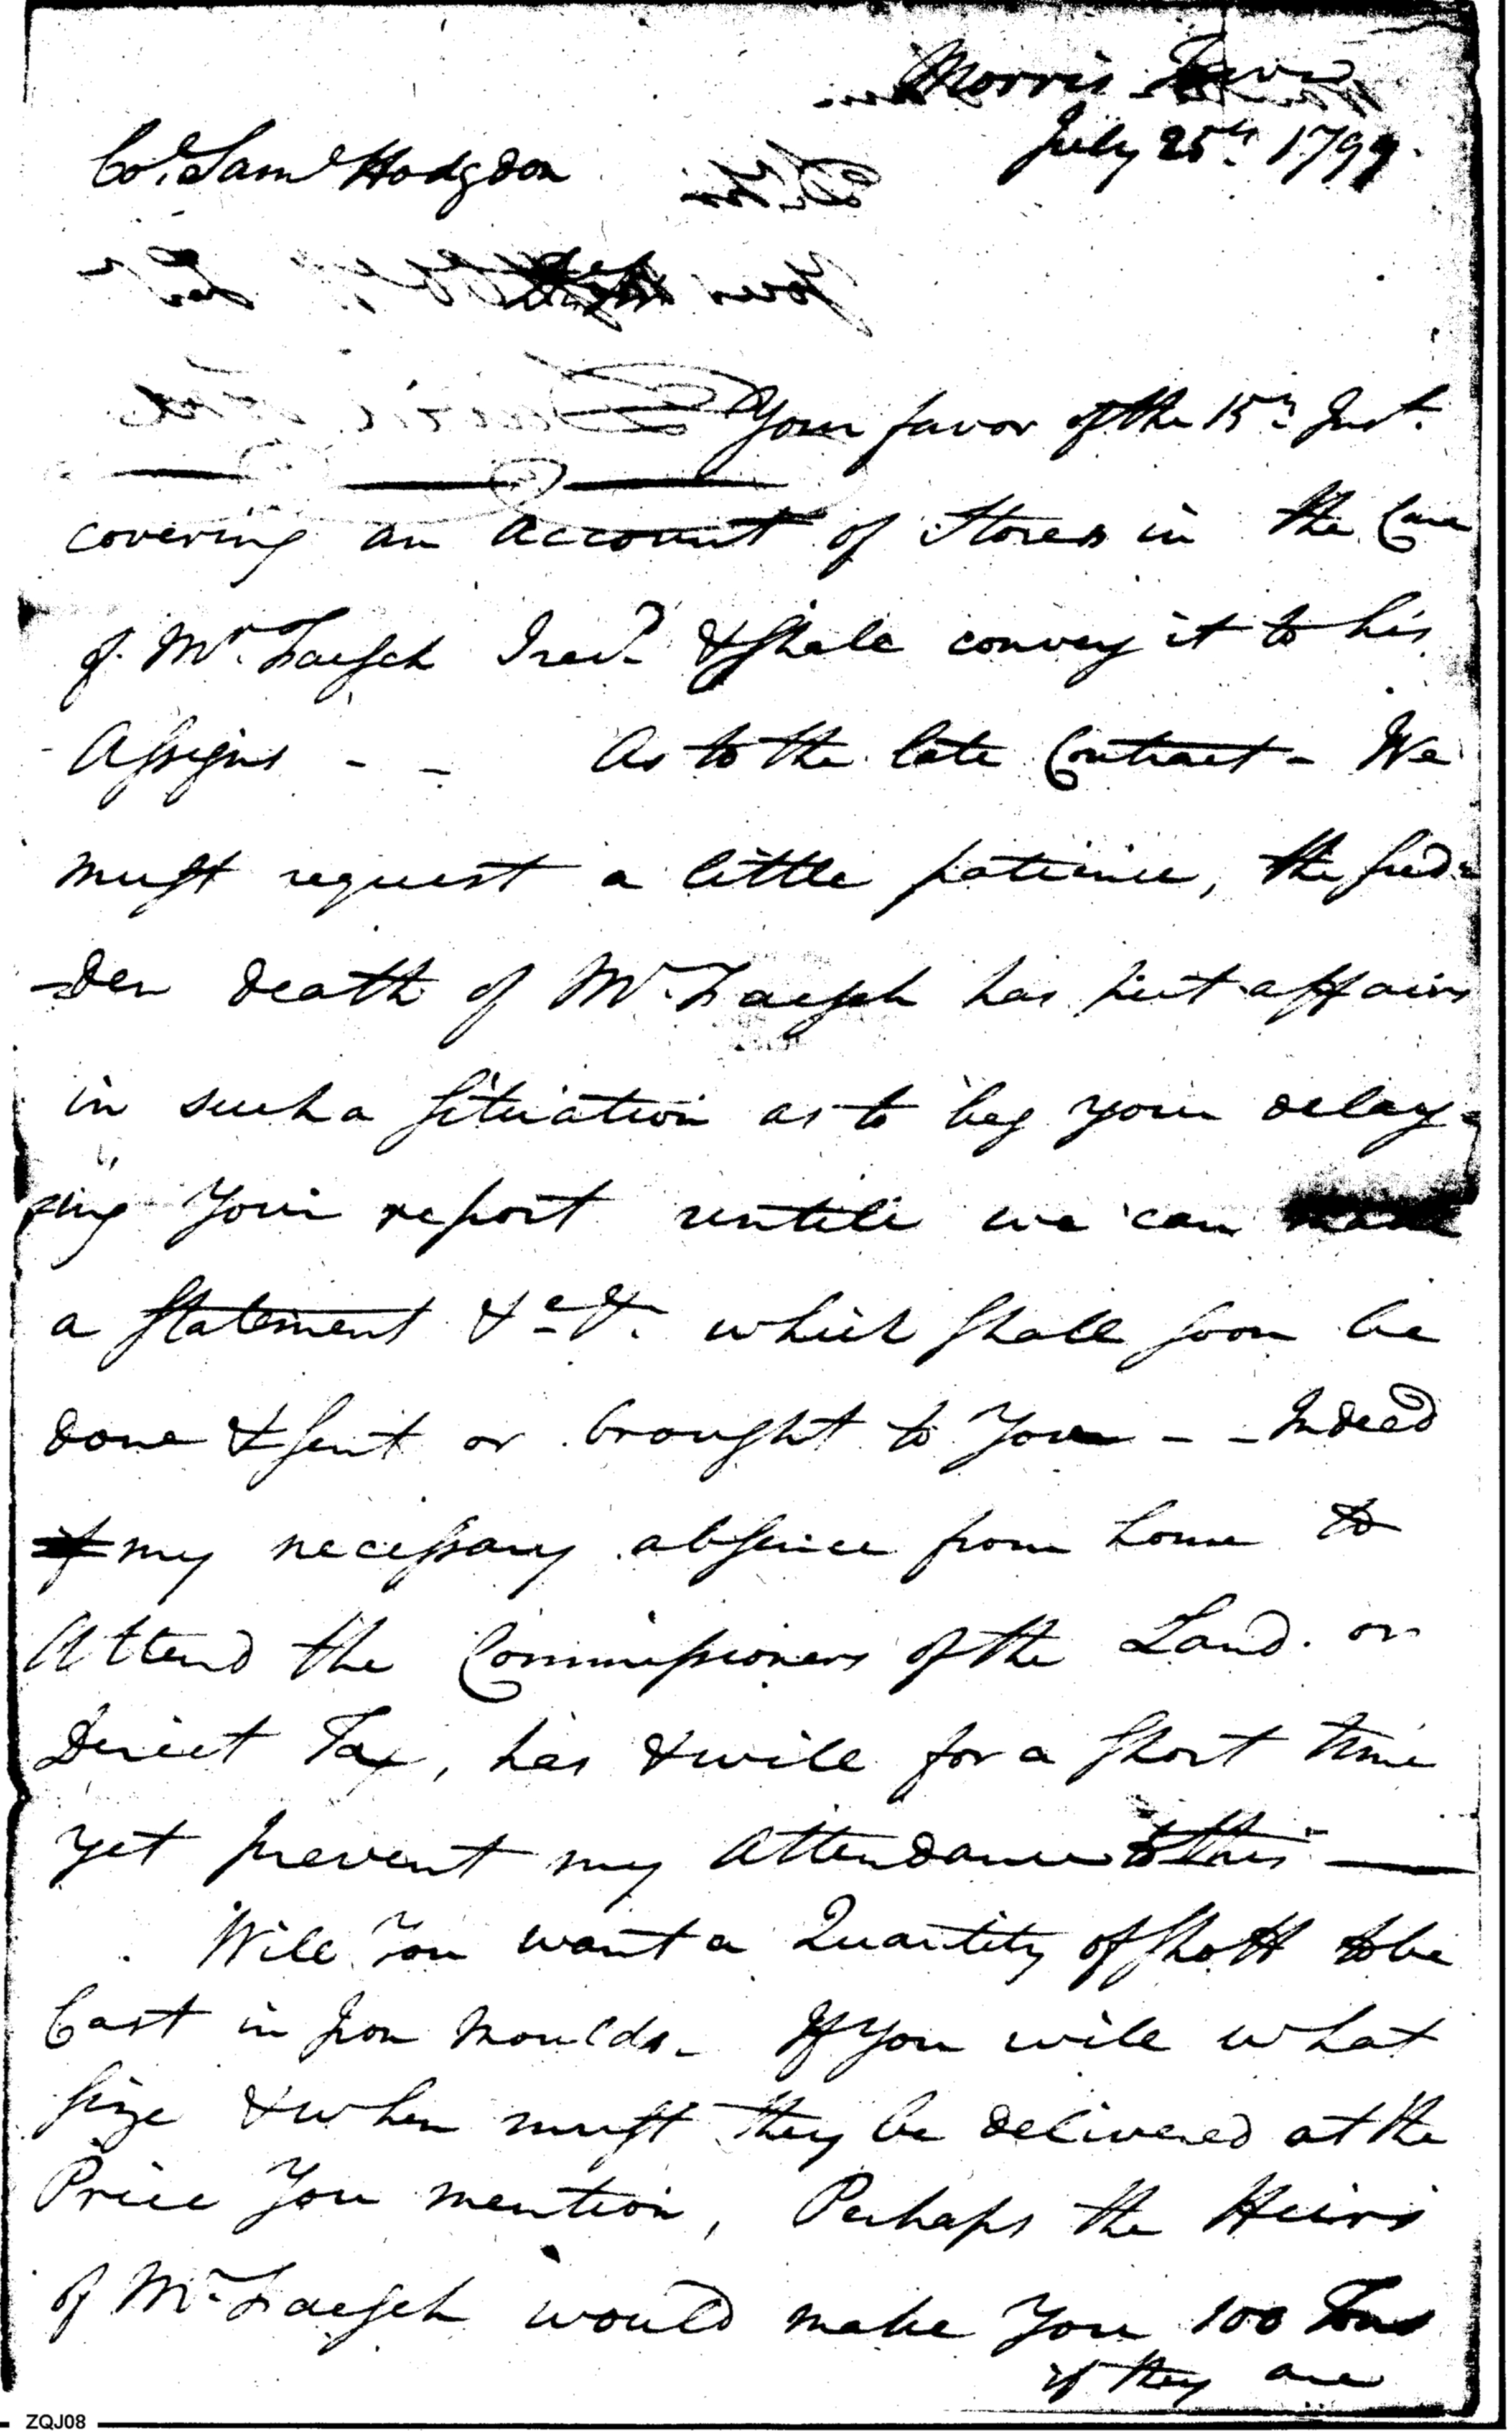 Morris Town
July 25th. 1799.
Col. Saml Hodgdon
Your favor of the 15th Inst.
covering an Account of Stores in the Care
of Mr. Faesch I recd. & shall convey it to his
Assigns - - As to the late Contract - We
must request a little patience, the sud=
-den death of Mr. Faesch has put affairs
in such a situation as to beg your delay=
=ing Your report untill we can make
a Statement &c &. which shall soon be
done & sent or brought to You - - Indeed
my necessary absence from home to
Attend the Commissioners of the Land or
Direct Tax, has & will for a short time
yet prevent my Attendance to this —
Will You want a Quantity of Shott to be
Cast in Iron Moulds - If You will what
size & when must they be delivered at the
Price You mention, Perhaps the Heirs
of Mr. Faesch would make You 100 Tons
if they are
ZQJ08